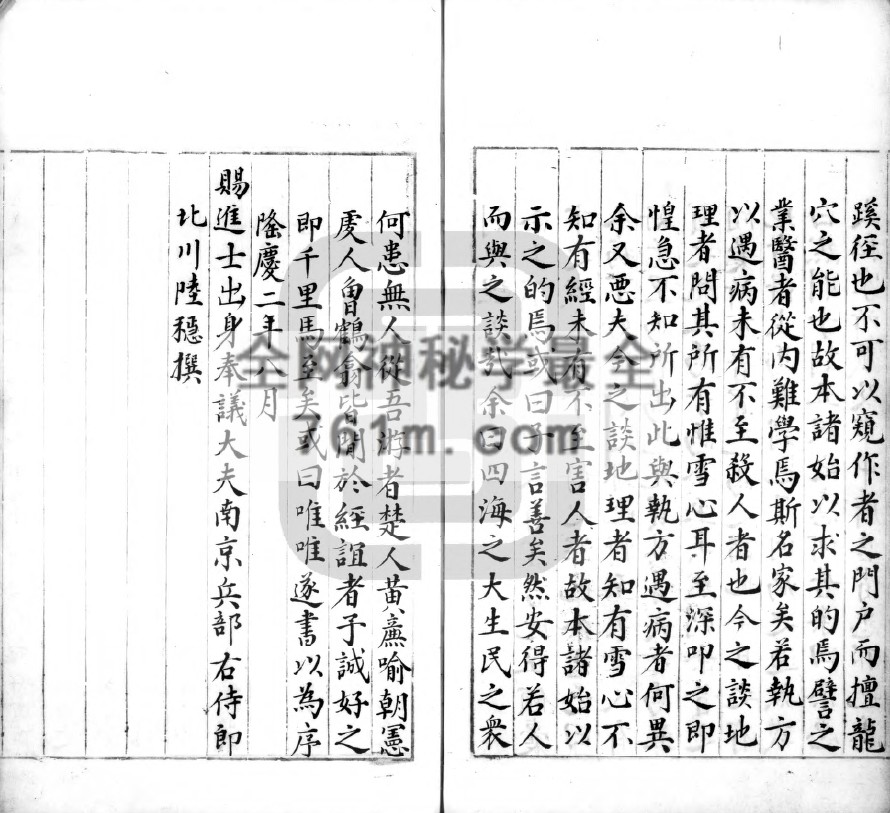 蹊徑也不可以窺作者之門户而擅龍
穴之能也故本諸始以求其的焉譬之
業醫者從内難學焉斯名家矣若執方
以遇病未有不至殺人者也今之談地
理者問其所有惟雪心耳至深叩之即
惶急不知所出此與執方遇病者何異
余又悪夫今之談地理者知有雪心不
知有經未有不至害人者故本諸始以
示之的焉或曰子言善矣然安得若人
而與之談哉余曰四海之大生民之衆
何患無人從吾游者楚人黄廉喻朝憲
虔人曾鶴翕皆聞於經誼者子誠好之
即千里馬至矣或曰唯唯遂書以為序
隆慶二年八月
賜進士出身奉議大夫南京兵部右侍郎
北川陸穩撰
全网神秘学最全
761m.com